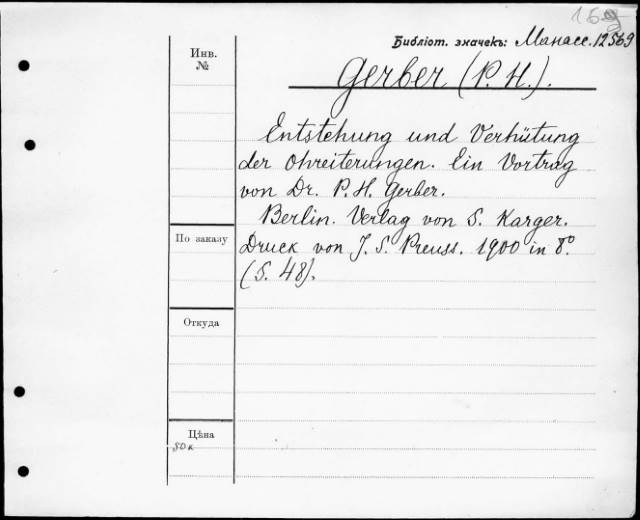 Библіот. значекъ: Манасс. 12569
Инв.
№
Gerber (P. H.).
Entstehung und Verhütung
der Ohreiterungen. Ein Vortrag
von Dr. P. H. Gerber.
Berlin. Verlag von S. Karger.
По заказу
Druck von J. S. Preuss. 1900 in 8º.
(S. 48).
Откуда
Цѣна
50 к